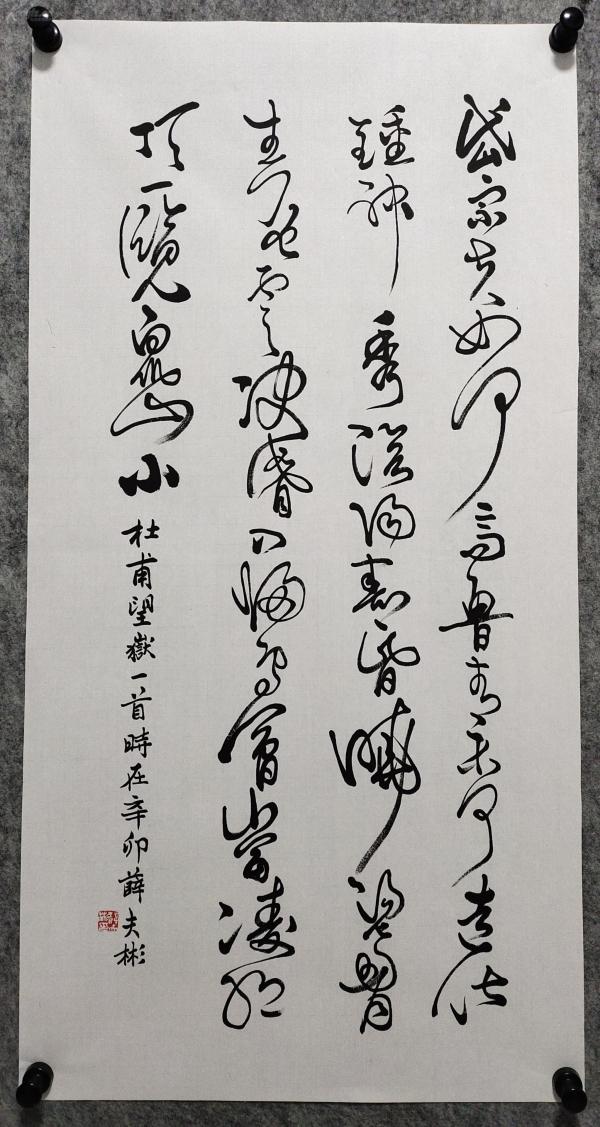 岱宗夫如何齊魯青未了造化
鍾神秀陰陽割昏曉盪胸
生層雲決眥入歸鳥會當凌絕
頂一覽衆山小
杜甫望嶽一首時在辛卯薛夫彬